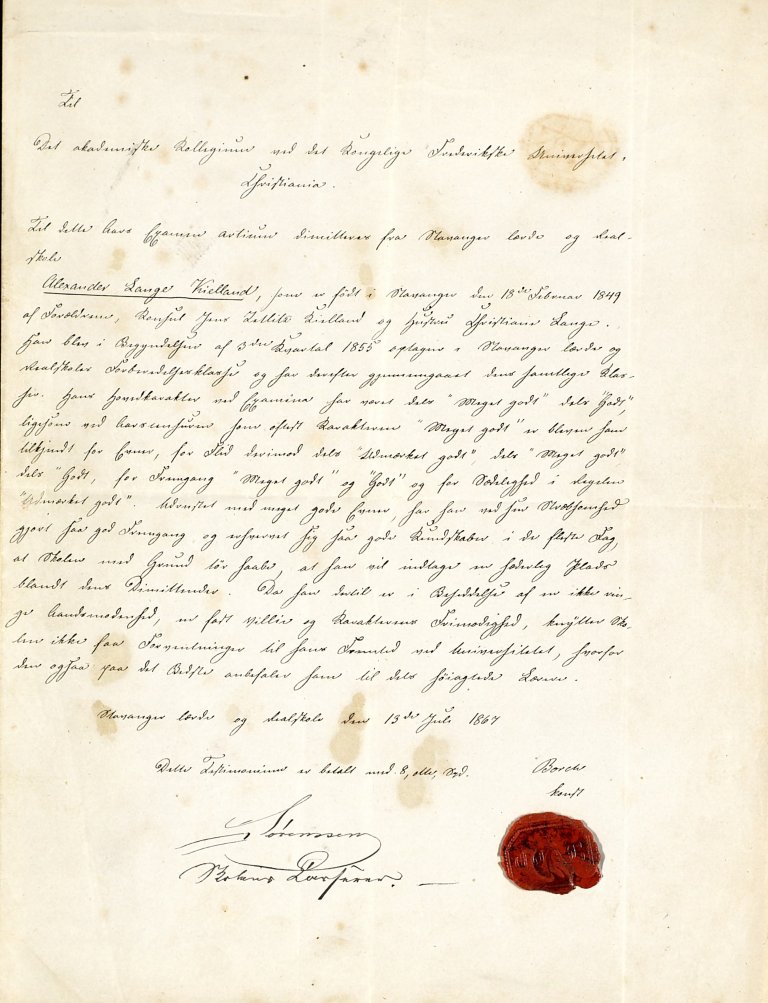 Til
Det akademiske Kollegium ved det Kongelige Frederikske Universitet,
Christiania.
Til dette Aars Examen artium dimitteres fra Stavanger lærde og Real-
skole
Alexander Lange Kielland, som er født i Stavanger den 18de Februar 1849
af Forældrene, Konsul Jens Zetlitz Kielland og Hustru Christiane Lange.
Han blev i Begyndelsen af 3die Kvartal 1855 optagen i Stavanger lærde og
Realskoles Forberedelsesklasse og har derefter gjennemgaaet dens samtlige Klas-
ser. Hans Hovedkarakter ved Examina har været dels "Meget godt" dels "Godt",
ligesom ved Aarscensuren som oftest Karakteren "Meget godt" er bleven ham
tilkjendt for Evner, for Flid derimod dels "Udmærket godt" dels "Meget godt"
dels "Godt, for Fremgang "Meget godt" og "Godt" og for Sædelighed i Regelen
"Udmærket godt". Udrustet med meget gode Evner, har han ved sin Stræbsomhed
gjort saa god Fremgang og erhvervet sig saa gode Kundskaber i de fleste Fag,
at Skolen med Grund tør haabe, at han vil indtage en hæderlig Plads
blandt dens Dimittender. Da han dertil er i Besiddelse af en ikke rin-
ge Aandsmodenhed, en fast Villie og Karakterens Frimodighed, knytter Sko-
len ikke faa Forventninger til hans Fremtid ved Universitetet, hvorfor
den ogsaa paa det Bedste anbefaler ham til dets høiagtede Lærere.
Stavanger lærde og Realskole den 13de Juli 1867
Dette Testimonium er betalt med 8, otte, Spd.
konst
Sørenssen
Skolens Kasserer.